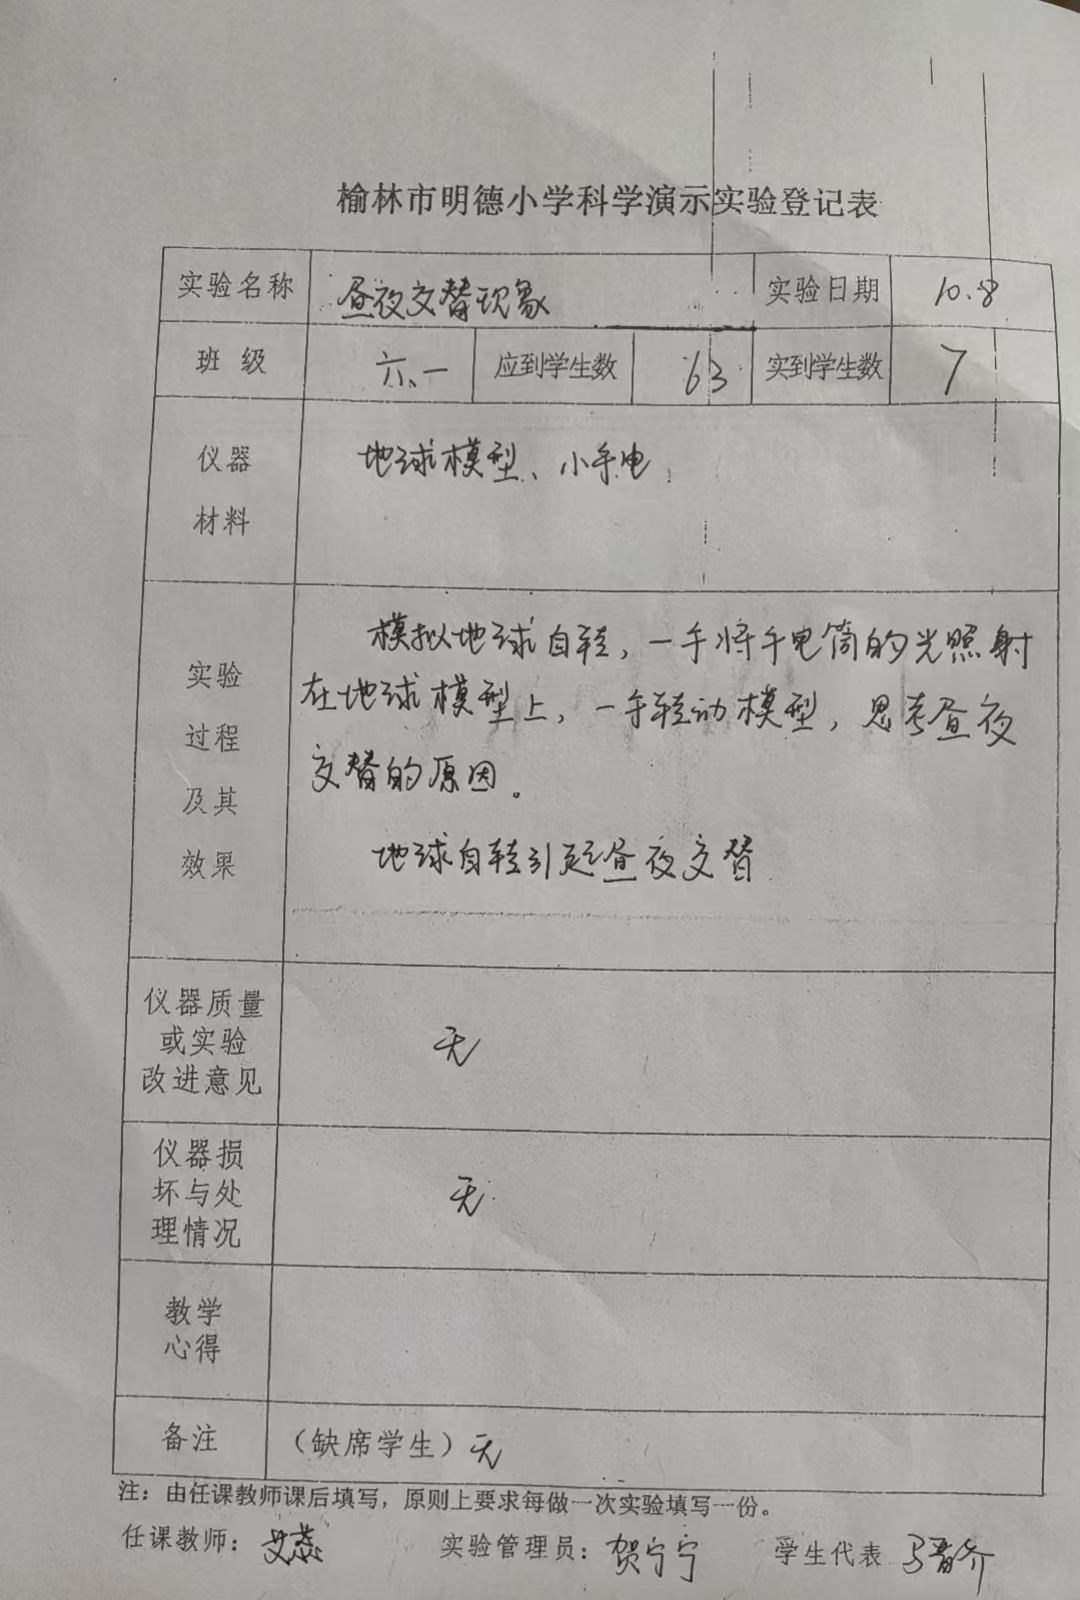 榆林市明德小学科学演示实验登记表
实验名称 昼夜交替现象 实验日期 10.8
班 级 六、一 应到学生数 63 实到学生数 7
仪器 地球模型、小手电
材料
模拟地球自转，一手将手电筒的光照射
实验 在地球模型上，一手转动模型，思考昼夜
过程 交替的原因。
及其
效果 地球自转引起昼夜交替
仪器质量
或实验 无
改进意见
仪器损
坏与处 无
理情况
教学
心得
备注 （缺席学生）无
注：由任课教师课后填写，原则上要求每做一次实验填写一份。
任课教师：艾蕊 实验管理员：贺宁宁 学生代表